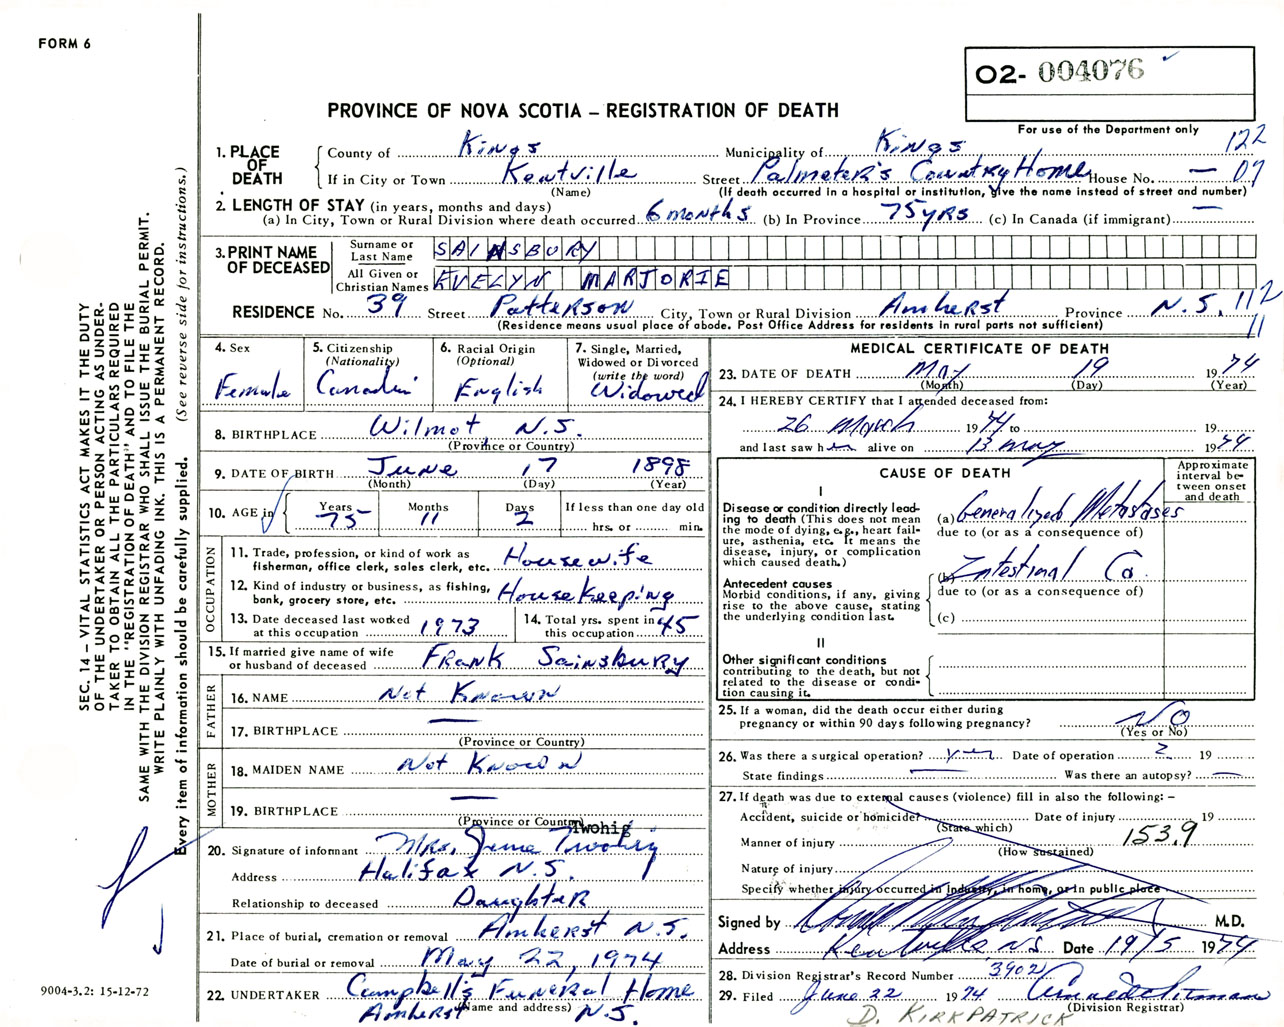 FORM 6
O2- 004076
PROVINCE OF NOVA SCOTIA – REGISTRATION OF DEATH
For use of the Department only
1. PLACE OF DEATH
County of Kings Municipality of Kings 122
If in City or Town Kentville Street Palmeter's Country Home House No. — 07
(Name) (If death occurred in a hospital or institution, give the name instead of street and number)
2. LENGTH OF STAY (in years, months and days)
(a) In City, Town or Rural Division where death occurred 6 months (b) In Province 75 yrs (c) In Canada (if immigrant) —
3. PRINT NAME OF DECEASED
Surname or Last Name SAINSBURY
All Given or Christian Names EVELYN MARJORIE
RESIDENCE No. 39 Street Patterson City, Town or Rural Division Amherst Province N.S. 112
(Residence means usual place of abode. Post Office Address for residents in rural parts not sufficient) 11
4. Sex
Female
5. Citizenship
(Nationality)
6. Racial Origin
(Optional)
English
7. Single, Married,
Widowed or Divorced
(write the word)
Widowed
8. BIRTHPLACE Wilmot N.S.
(Province or Country)
9. DATE OF BIRTH June 17 1898
(Month) (Day) (Year)
10. AGE in
Years 75
Months 11
Days 2
If less than one day old
hrs. or min.
OCCUPATION
11. Trade, profession, or kind of work as
fisherman, office clerk, sales clerk, etc. Housewife
12. Kind of industry or business, as fishing,
bank, grocery store, etc. House Keeping
13. Date deceased last worked
at this occupation 1973
14. Total yrs. spent in
this occupation 45
15. If married give name of wife
or husband of deceased Frank Sainsbury
FATHER
16. NAME Not Known
17. BIRTHPLACE —
(Province or Country)
MOTHER
18. MAIDEN NAME Not Known
19. BIRTHPLACE —
(Province or Country)
Twohig
20. Signature of informant Mrs. June Twohig
Address Halifax N.S.
Relationship to deceased Daughter
21. Place of burial, cremation or removal Amherst N.S.
Date of burial or removal May 22, 1974
22. UNDERTAKER Campbell's Funeral Home
(Name and address)
Amherst N.S.
MEDICAL CERTIFICATE OF DEATH
23. DATE OF DEATH May 19 1974
(Month) (Day) (Year)
24. I HEREBY CERTIFY that I attended deceased from:
26 March 1974 to 19
and last saw her alive on 13 May 1974
CAUSE OF DEATH
Approximate
interval be-
tween onset
and death
I
Disease or condition directly lead-
ing to death (This does not mean
the mode of dying, e.g., heart fail-
ure, asthenia, etc. It means the
disease, injury, or complication
which caused death.)
(a) Generalized Metastases
due to (or as a consequence of)
Antecedent causes
Morbid conditions, if any, giving
rise to the above cause, stating
the underlying condition last.
(b) Intestinal Ca.
due to (or as a consequence of)
(c)
II
Other significant conditions
contributing to the death, but not
related to the disease or condi-
tion causing it.
25. If a woman, did the death occur either during
pregnancy or within 90 days following pregnancy? NO
(Yes or No)
26. Was there a surgical operation? yes Date of operation ? 19
State findings — Was there an autopsy? —
27. If death was due to external causes (violence) fill in also the following: –
Accident, suicide or homicide? Date of injury 19
(State which)
Manner of injury 153.9
(How sustained)
Nature of injury
Specify whether injury occurred in industry, in home, or in public place
Signed by M.D.
Address Kentville, N.S. Date 19/5 1974
28. Division Registrar's Record Number 3902
29. Filed June 22 1974
(Division Registrar)
D. KIRKPATRICK
SEC. 14 – VITAL STATISTICS ACT MAKES IT THE DUTY
OF THE UNDERTAKER OR PERSON ACTING AS UNDER-
TAKER TO OBTAIN ALL THE PARTICULARS REQUIRED
IN THE "REGISTRATION OF DEATH" AND TO FILE THE
SAME WITH THE DIVISION REGISTRAR WHO SHALL ISSUE THE BURIAL PERMIT.
WRITE PLAINLY WITH UNFADING INK. THIS IS A PERMANENT RECORD.
Every item of information should be carefully supplied. (See reverse side for instructions.)
9004-3.2: 15-12-72